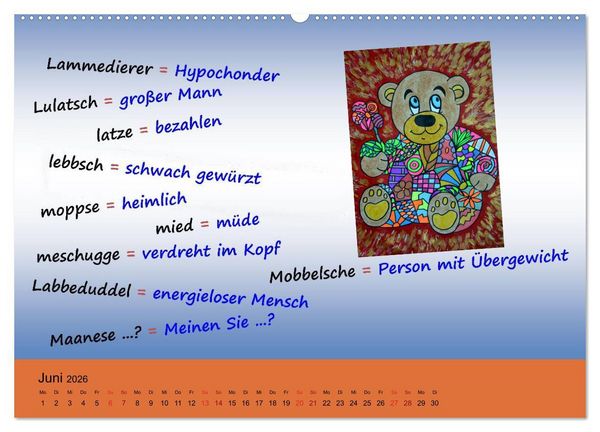 Lammedierer = Hypochonder
Lulatsch = großer Mann
latze = bezahlen
lebbsch = schwach gewürzt
moppse = heimlich
mied = müde
meschugge = verdreht im Kopf
Mobbelsche = Person mit Übergewicht
Labbeduddel = energieloser Mensch
Maanese ...? = Meinen Sie ...?
Juni 2026
Mo Di Mi Do Fr Sa So Mo Di Mi Do Fr Sa So Mo Di Mi Do Fr Sa So Mo Di Mi Do Fr Sa So Mo Di
1 2 3 4 5 6 7 8 9 10 11 12 13 14 15 16 17 18 19 20 21 22 23 24 25 26 27 28 29 30